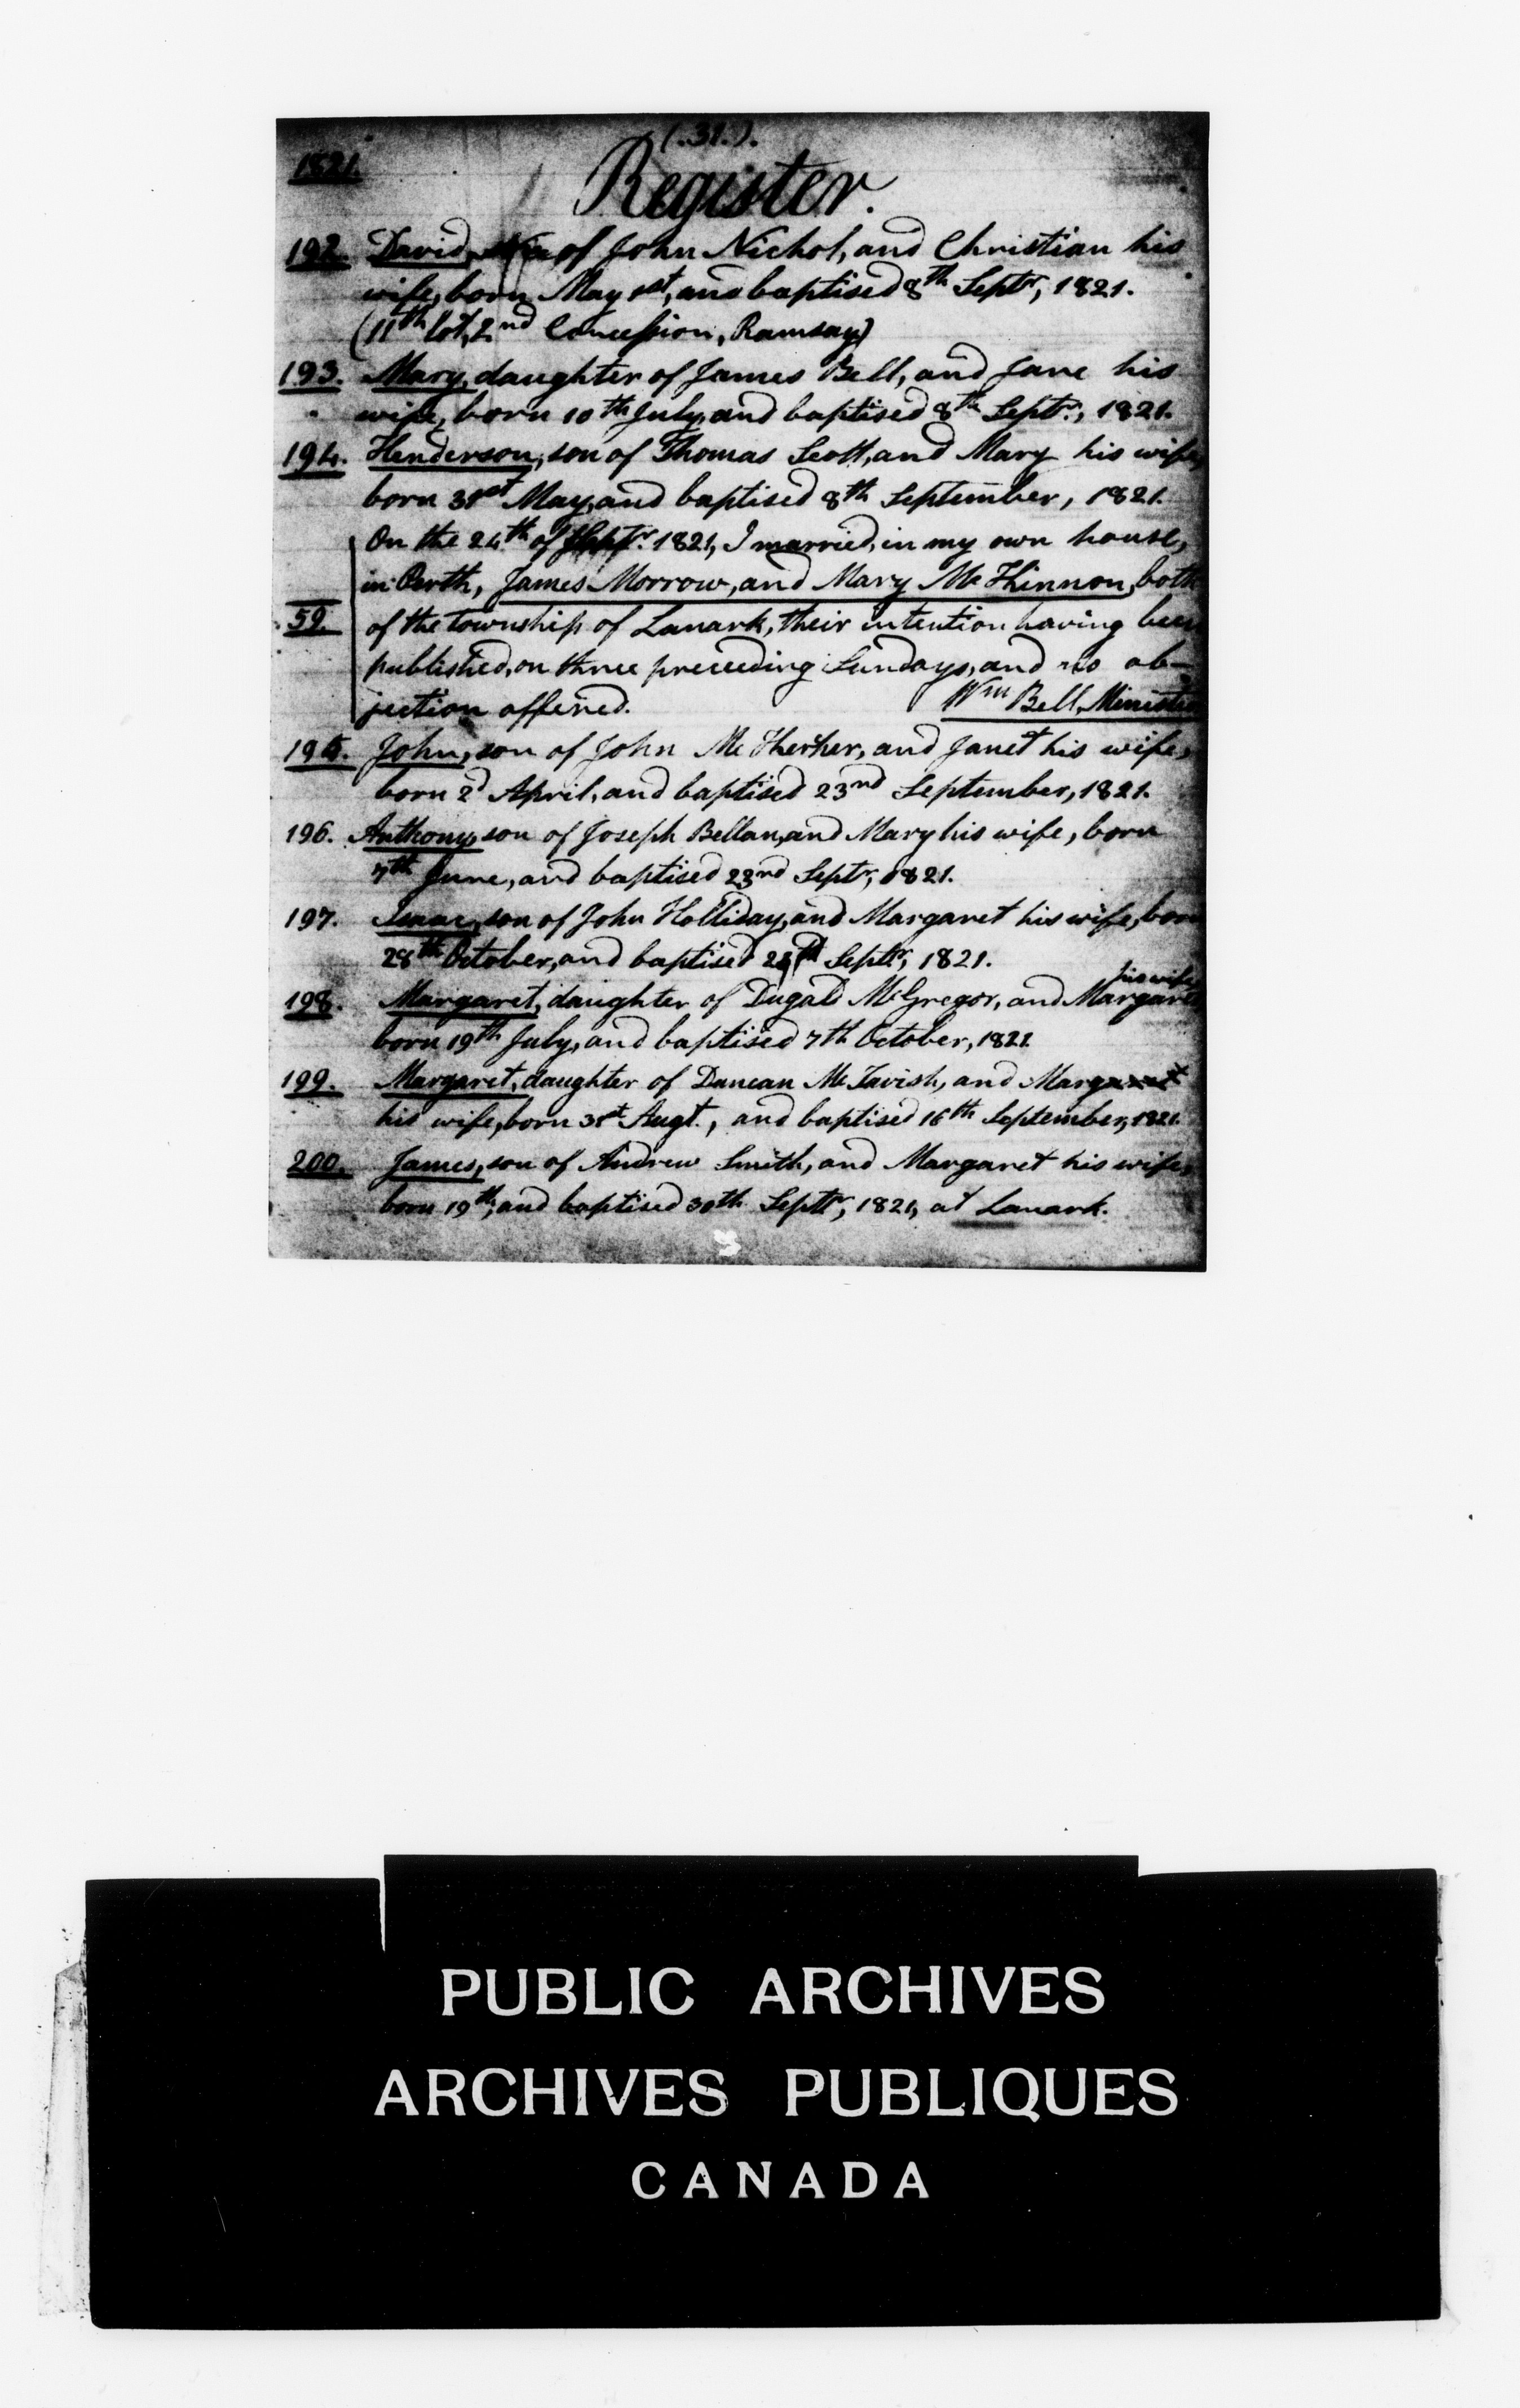 (.31.).
1821.
Register.
192. David, son of John Nichol, and Christian his
wife, born May 1st, and baptised 8th Septr, 1821.
(11th lot, 2nd Concession, Ramsay)
193. Mary, daughter of James Bell, and Jane his
wife, born 10th July, and baptised 8th Septr., 1821.
194. Henderson, son of Thomas Scott, and Mary his wife,
born 31st May, and baptised 8th September, 1821.
On the 24th of Septr. 1821, I married, in my own house,
in Perth, James Morrow, and Mary McKinnon, both
59. of the township of Lanark, their intention having been
published, on three preceeding Sundays, and no ob-
jection offered. Wm Bell, Minister
195. John, son of John and Janet his wife,
born 2d April, and baptised 23rd September, 1821.
196. Anthony, son of Joseph Bellan, and Mary his wife, born
7th June, and baptised 23nd Septr, 1821.
197. Isaac, son of John Holliday, and Margaret his wife, born
28th October, and baptised Septr, 1821.
198. Margaret, daughter of Dugald McGregor, and Margaret his wife
born 19th July, and baptised 7th October, 1821.
199. Margaret, daughter of Duncan McTavish, and Margaret
his wife, born 31st Augt., and baptised 16th September, 1821.
200. James, son of Andrew Smith, and Margaret his wife,
born 19th, and baptised 30th Septr, 1821, at Lanark.
PUBLIC ARCHIVES
ARCHIVES PUBLIQUES
CANADA